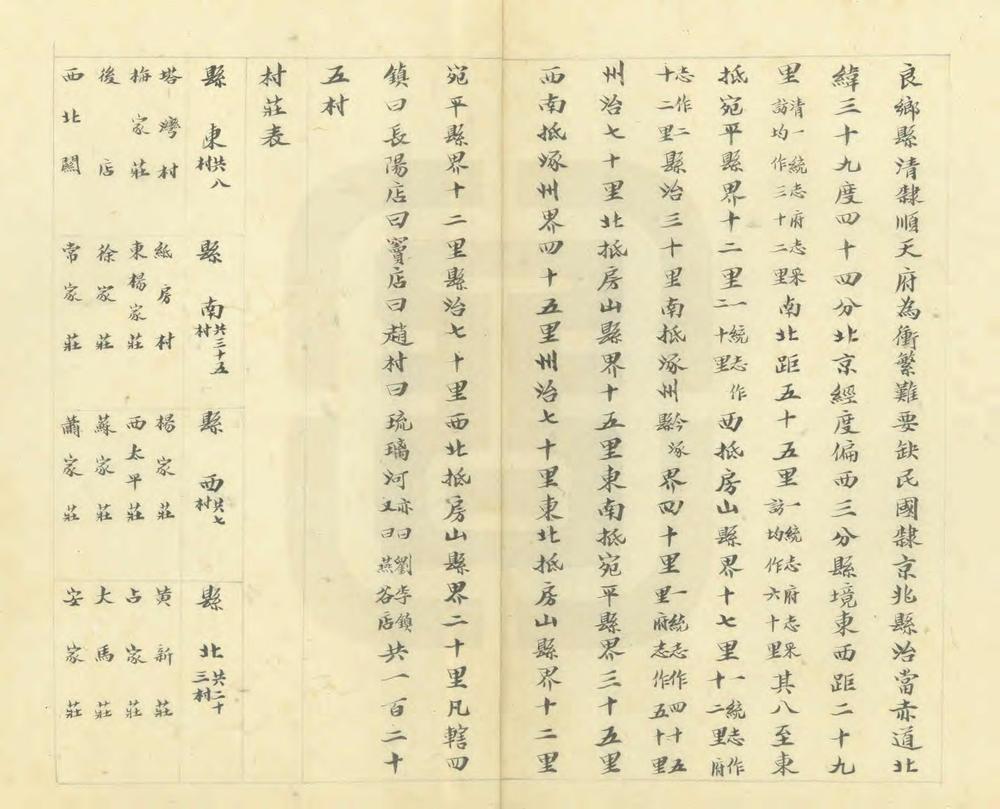 良鄉縣清隸順天府為衝繁難要缺民國隸京兆縣治當赤道北
緯三十九度四十四分北京經度偏西三分縣境東西距二十九
里清一統志府志采訪均作三十二里南北距五十五里一統志府志采訪均作六十里其八至東
抵宛平縣界十二里一統志作二十里西抵房山縣界十七里一統志作十二里府
志作二十二里縣治三十里南抵涿州今涿縣界四十里一統志作四十五里府志作五十里
州治七十里北抵房山縣界十五里東南抵宛平縣界三十五里
西南抵涿州界四十五里州治七十里東北抵房山縣界十二里
宛平縣界十二里縣治七十里西北抵房山縣界二十里凡轄四
鎮曰長陽店曰竇店曰趙村曰琉璃河亦曰劉李鎮又曰燕谷店共一百二十
五村
村莊表
縣東共八村
縣南共三十五村
縣西共七村
縣北共二十三村
塔灣村
紙房村
楊家莊
黃新莊
梅家莊
東楊家莊
西太平莊
占家莊
後店
徐家莊
蘇家莊
大馬莊
西北關
常家莊
蕭家莊
安家莊